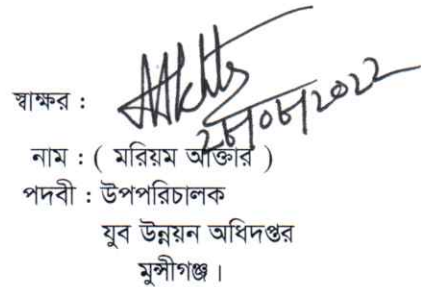 স্বাক্ষর :
নাম : ( মরিয়ম আক্তার )
পদবী : উপপরিচালক
যুব উন্নয়ন অধিদপ্তর
মুন্সীগঞ্জ।